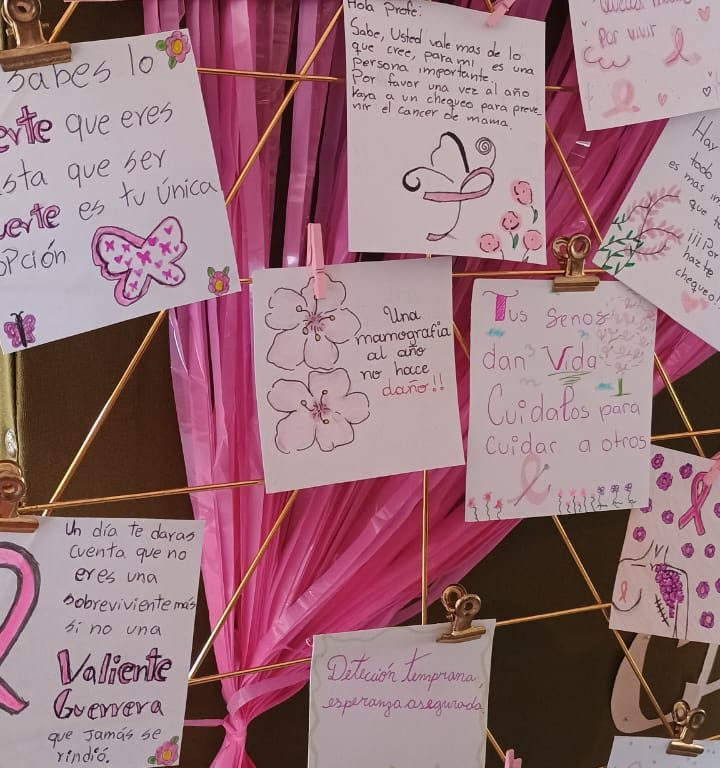 sabes lo
que eres
que ser
es tu única
opción
Hola Profe:
Sabe, Usted vale mas de lo
que cree, para mi es una
persona importante.
Por favor una vez al año
vaya a un chequeo para preve_
nir el cancer de mama.
Por vivir
Hay
todo
es mas im
que tu
¡¡¡Por
hazte
chequeo
Una
mamografia
al año
no hace
daño!!
Tus senos
dan Vida
Cuidalos para
cuidar a otros
Un día te daras
cuenta que no
eres una
sobreviviente mas
si no una
Valiente
Guerrera
que jamás se
rindió.
Detección temprana,
esperanza asegurada